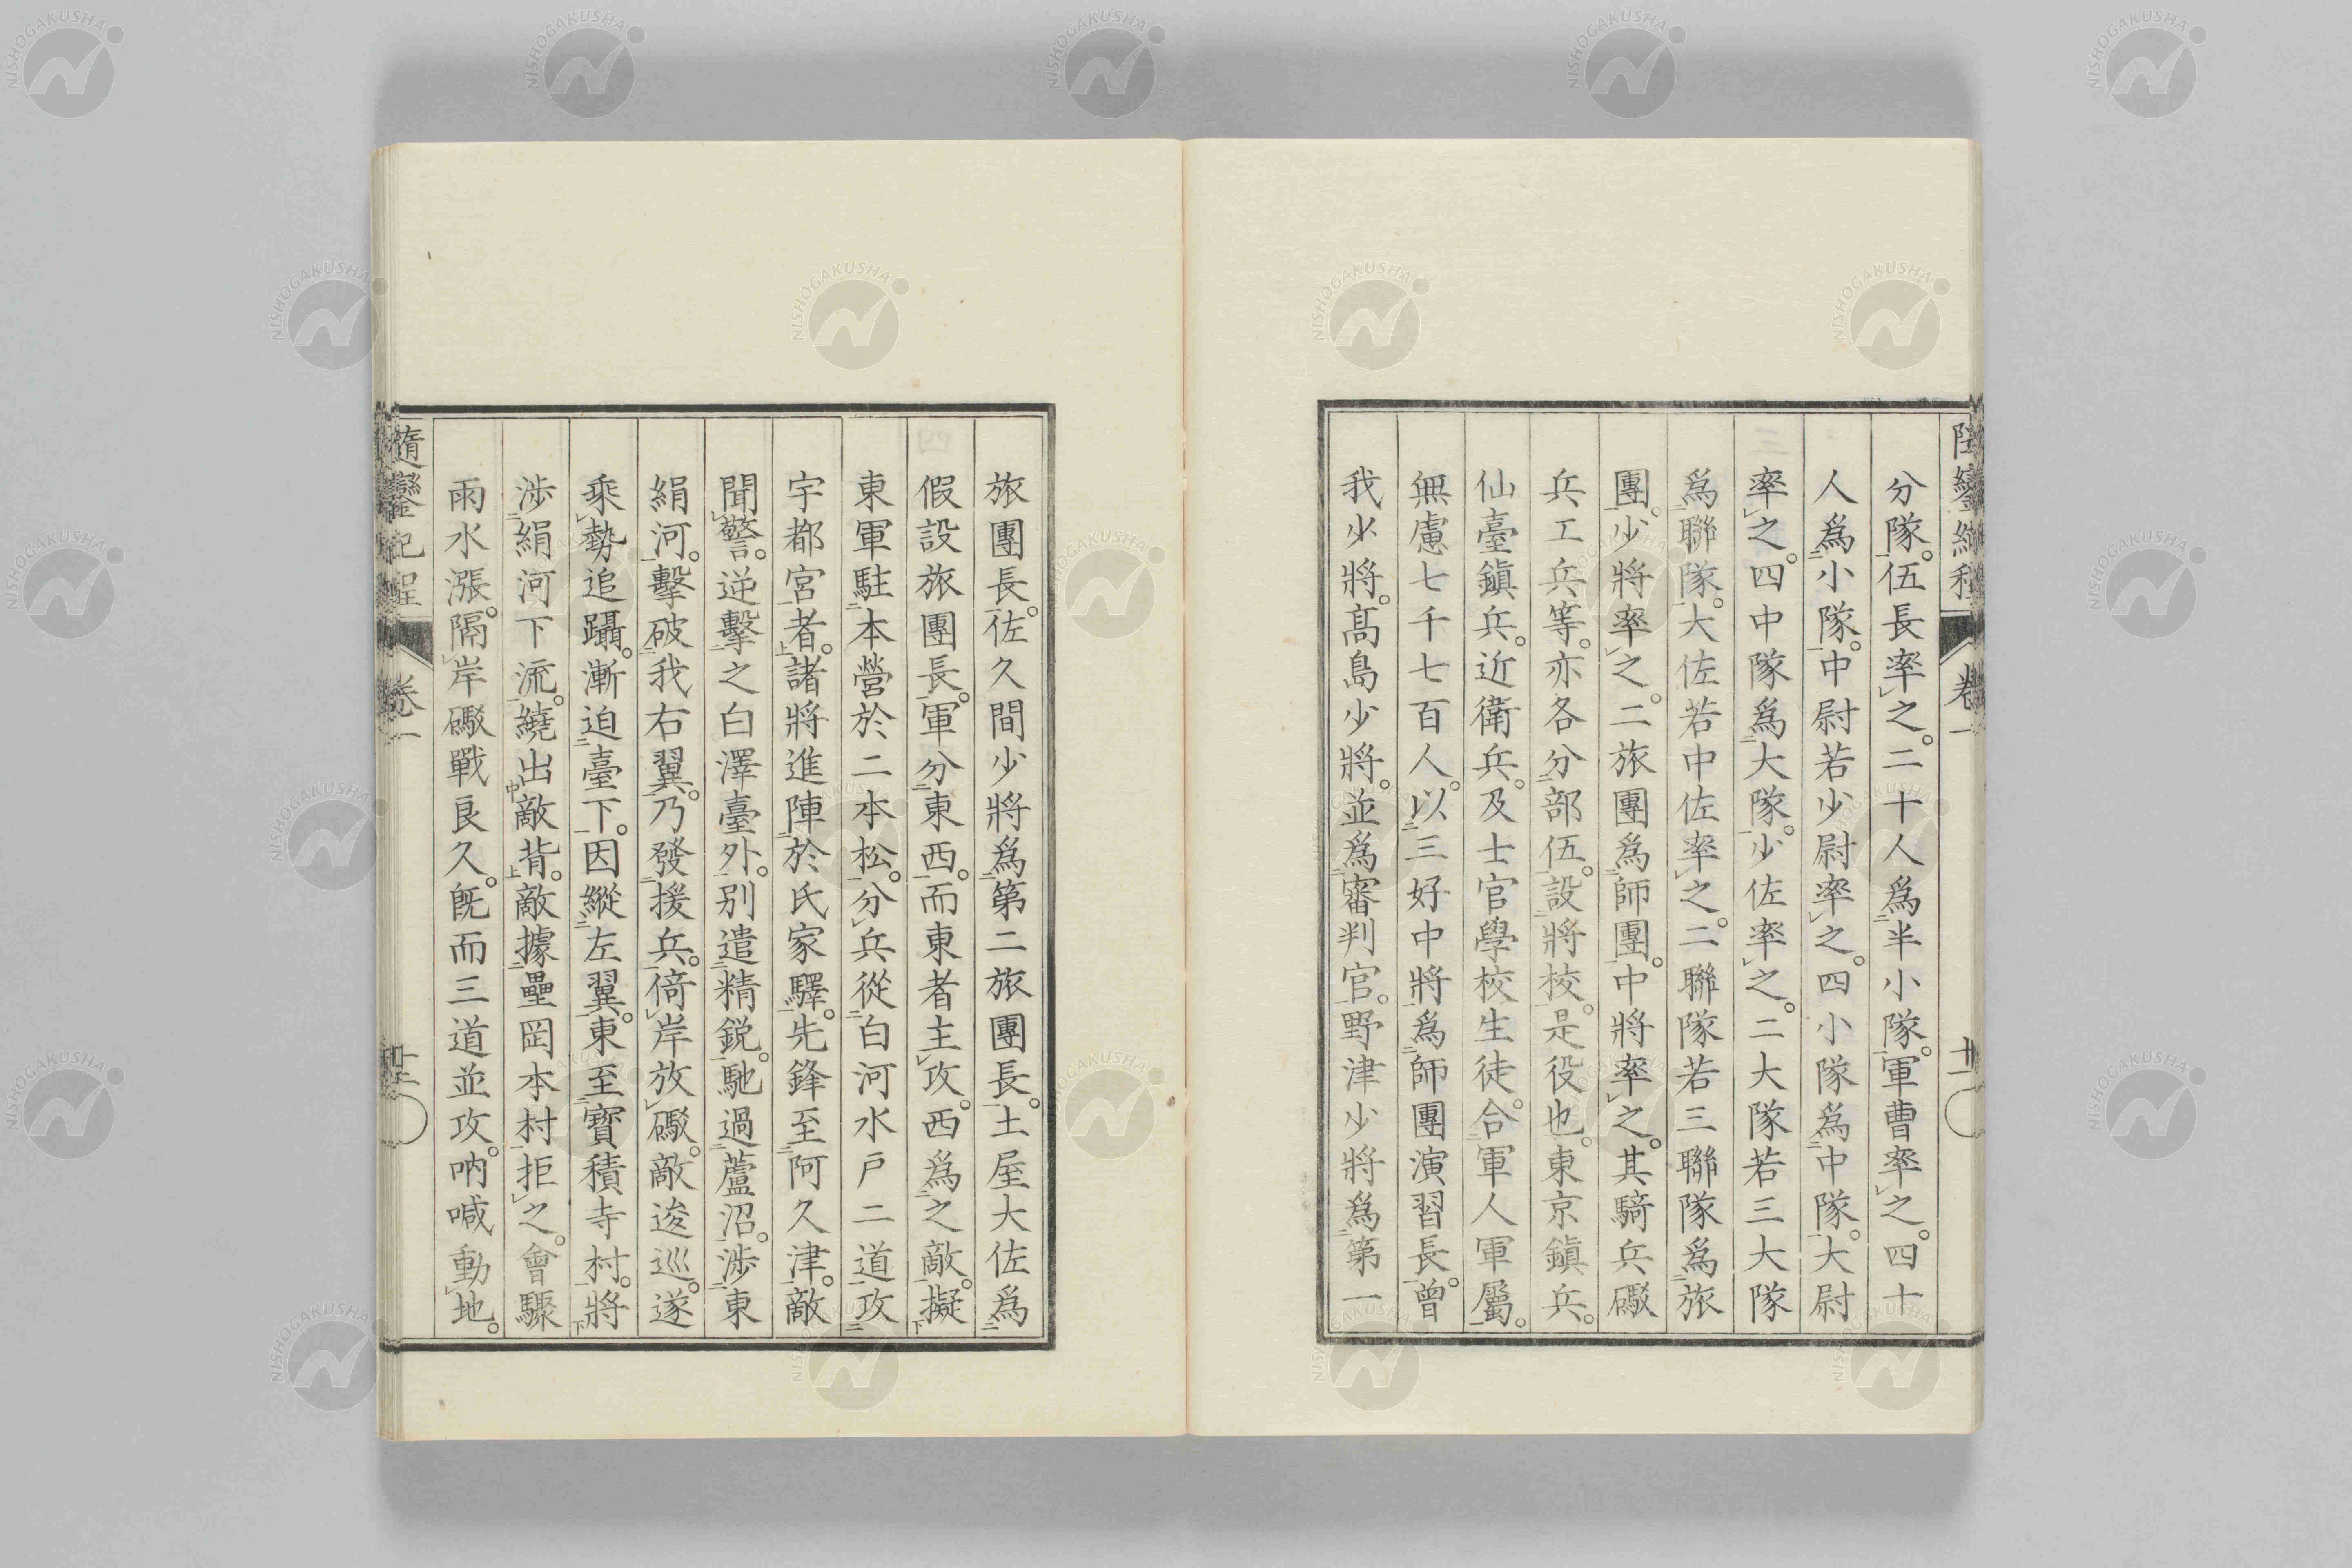 分隊。伍長率之。二十人爲半小隊。軍曹率之。四十
人爲小隊。中尉若少尉率之。四小隊爲中隊。大尉
率之。四中隊爲大隊。少佐率之。二大隊若三大隊
爲聯隊。大佐若中佐率之。二聯隊若三聯隊爲旅
團。少將率之。二旅團爲師團。中將率之。其騎兵礟
兵工兵等。亦各分部伍。設將校。是役也。東京鎭兵。
仙臺鎭兵。近衛兵。及士官學校生徒。合軍人軍屬。
無慮七千七百人。以三好中將爲師團演習長。曾
我少將。高島少將。並爲審判官。野津少將爲第一
旅團長。佐久間少將爲第二旅團長。土屋大佐爲
假設旅團長。軍分東西。而東者主攻。西爲之敵。擬
東軍駐本營於二本松。分兵從白河水戶二道攻
宇都宮者。諸將進陣於氏家驛。先鋒至阿久津。敵
聞警。逆擊之白澤臺外。別遣精鋭。馳過蘆沼。涉東
絹河。擊破我右翼。乃發援兵。倚岸放礟。敵逡巡。遂
乘勢追躡。漸迫臺下。因縱左翼。東至寶積寺村。將
涉絹河下流。繞出敵背。敵據壘岡本村拒之。會驟
雨水漲。隔岸礟戰良久。旣而三道並攻。吶喊動地。
隨鑾紀程
卷一
NISHOGAKUSHA